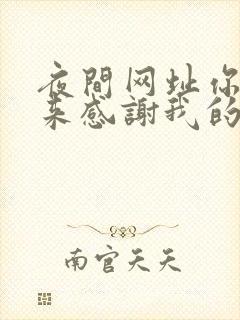 夜間网址你
来感謝我的
南官天天